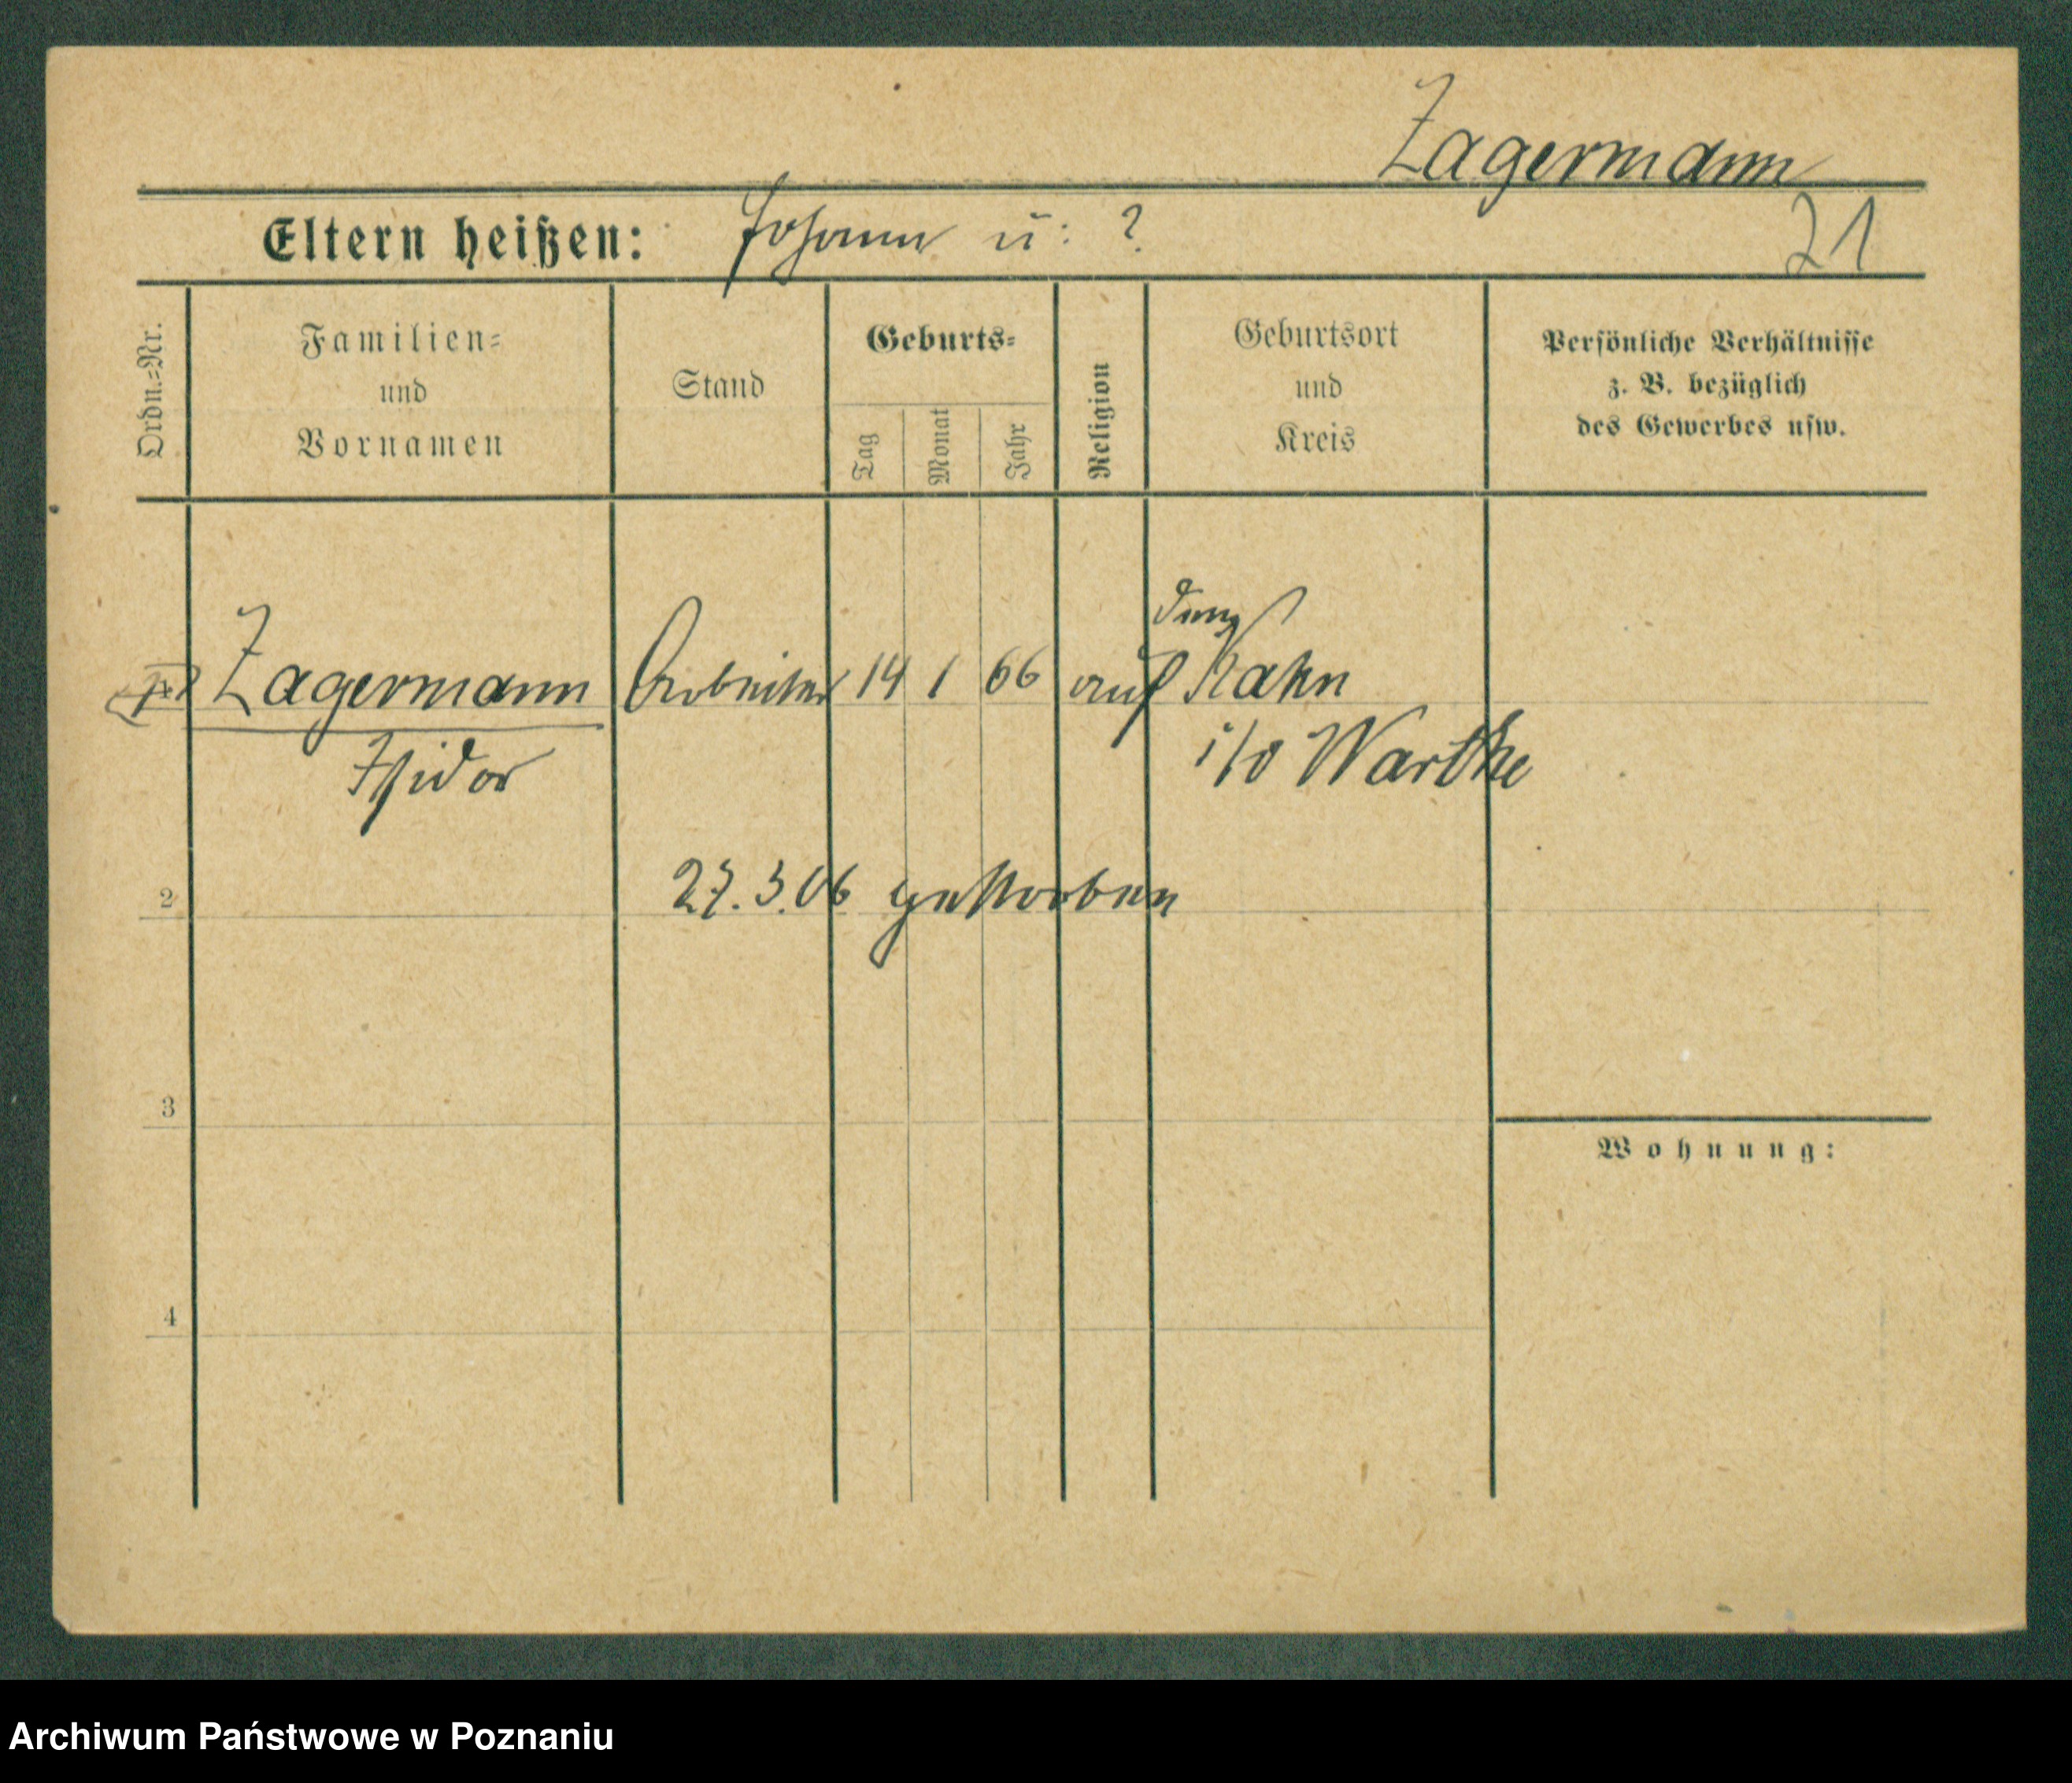 Zagermann
Eltern heißen: Johann u: ?
21
Ordn.=Nr.
Familien=
und
Vornamen
Stand
Geburts=
Tag
Monat
Jahr
Religion
Geburtsort
und
Kreis
Persönliche Verhältnisse
z. B. bezüglich
des Gewerbes usw.
Zagermann Arbeiter 14 1 66 auf Kahn
Isidor
i/d Warthe
2
27.3.06 gestorben
3
Wohnung:
4
Archiwum Państwowe w Poznaniu